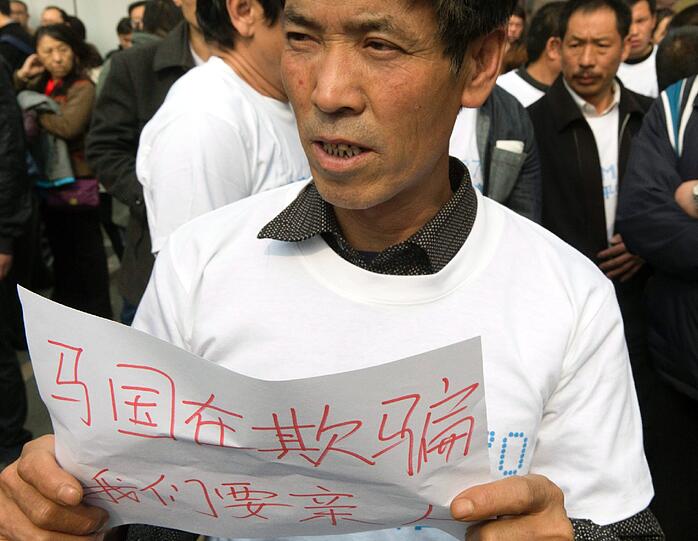 马国在欺骗
我们要亲人